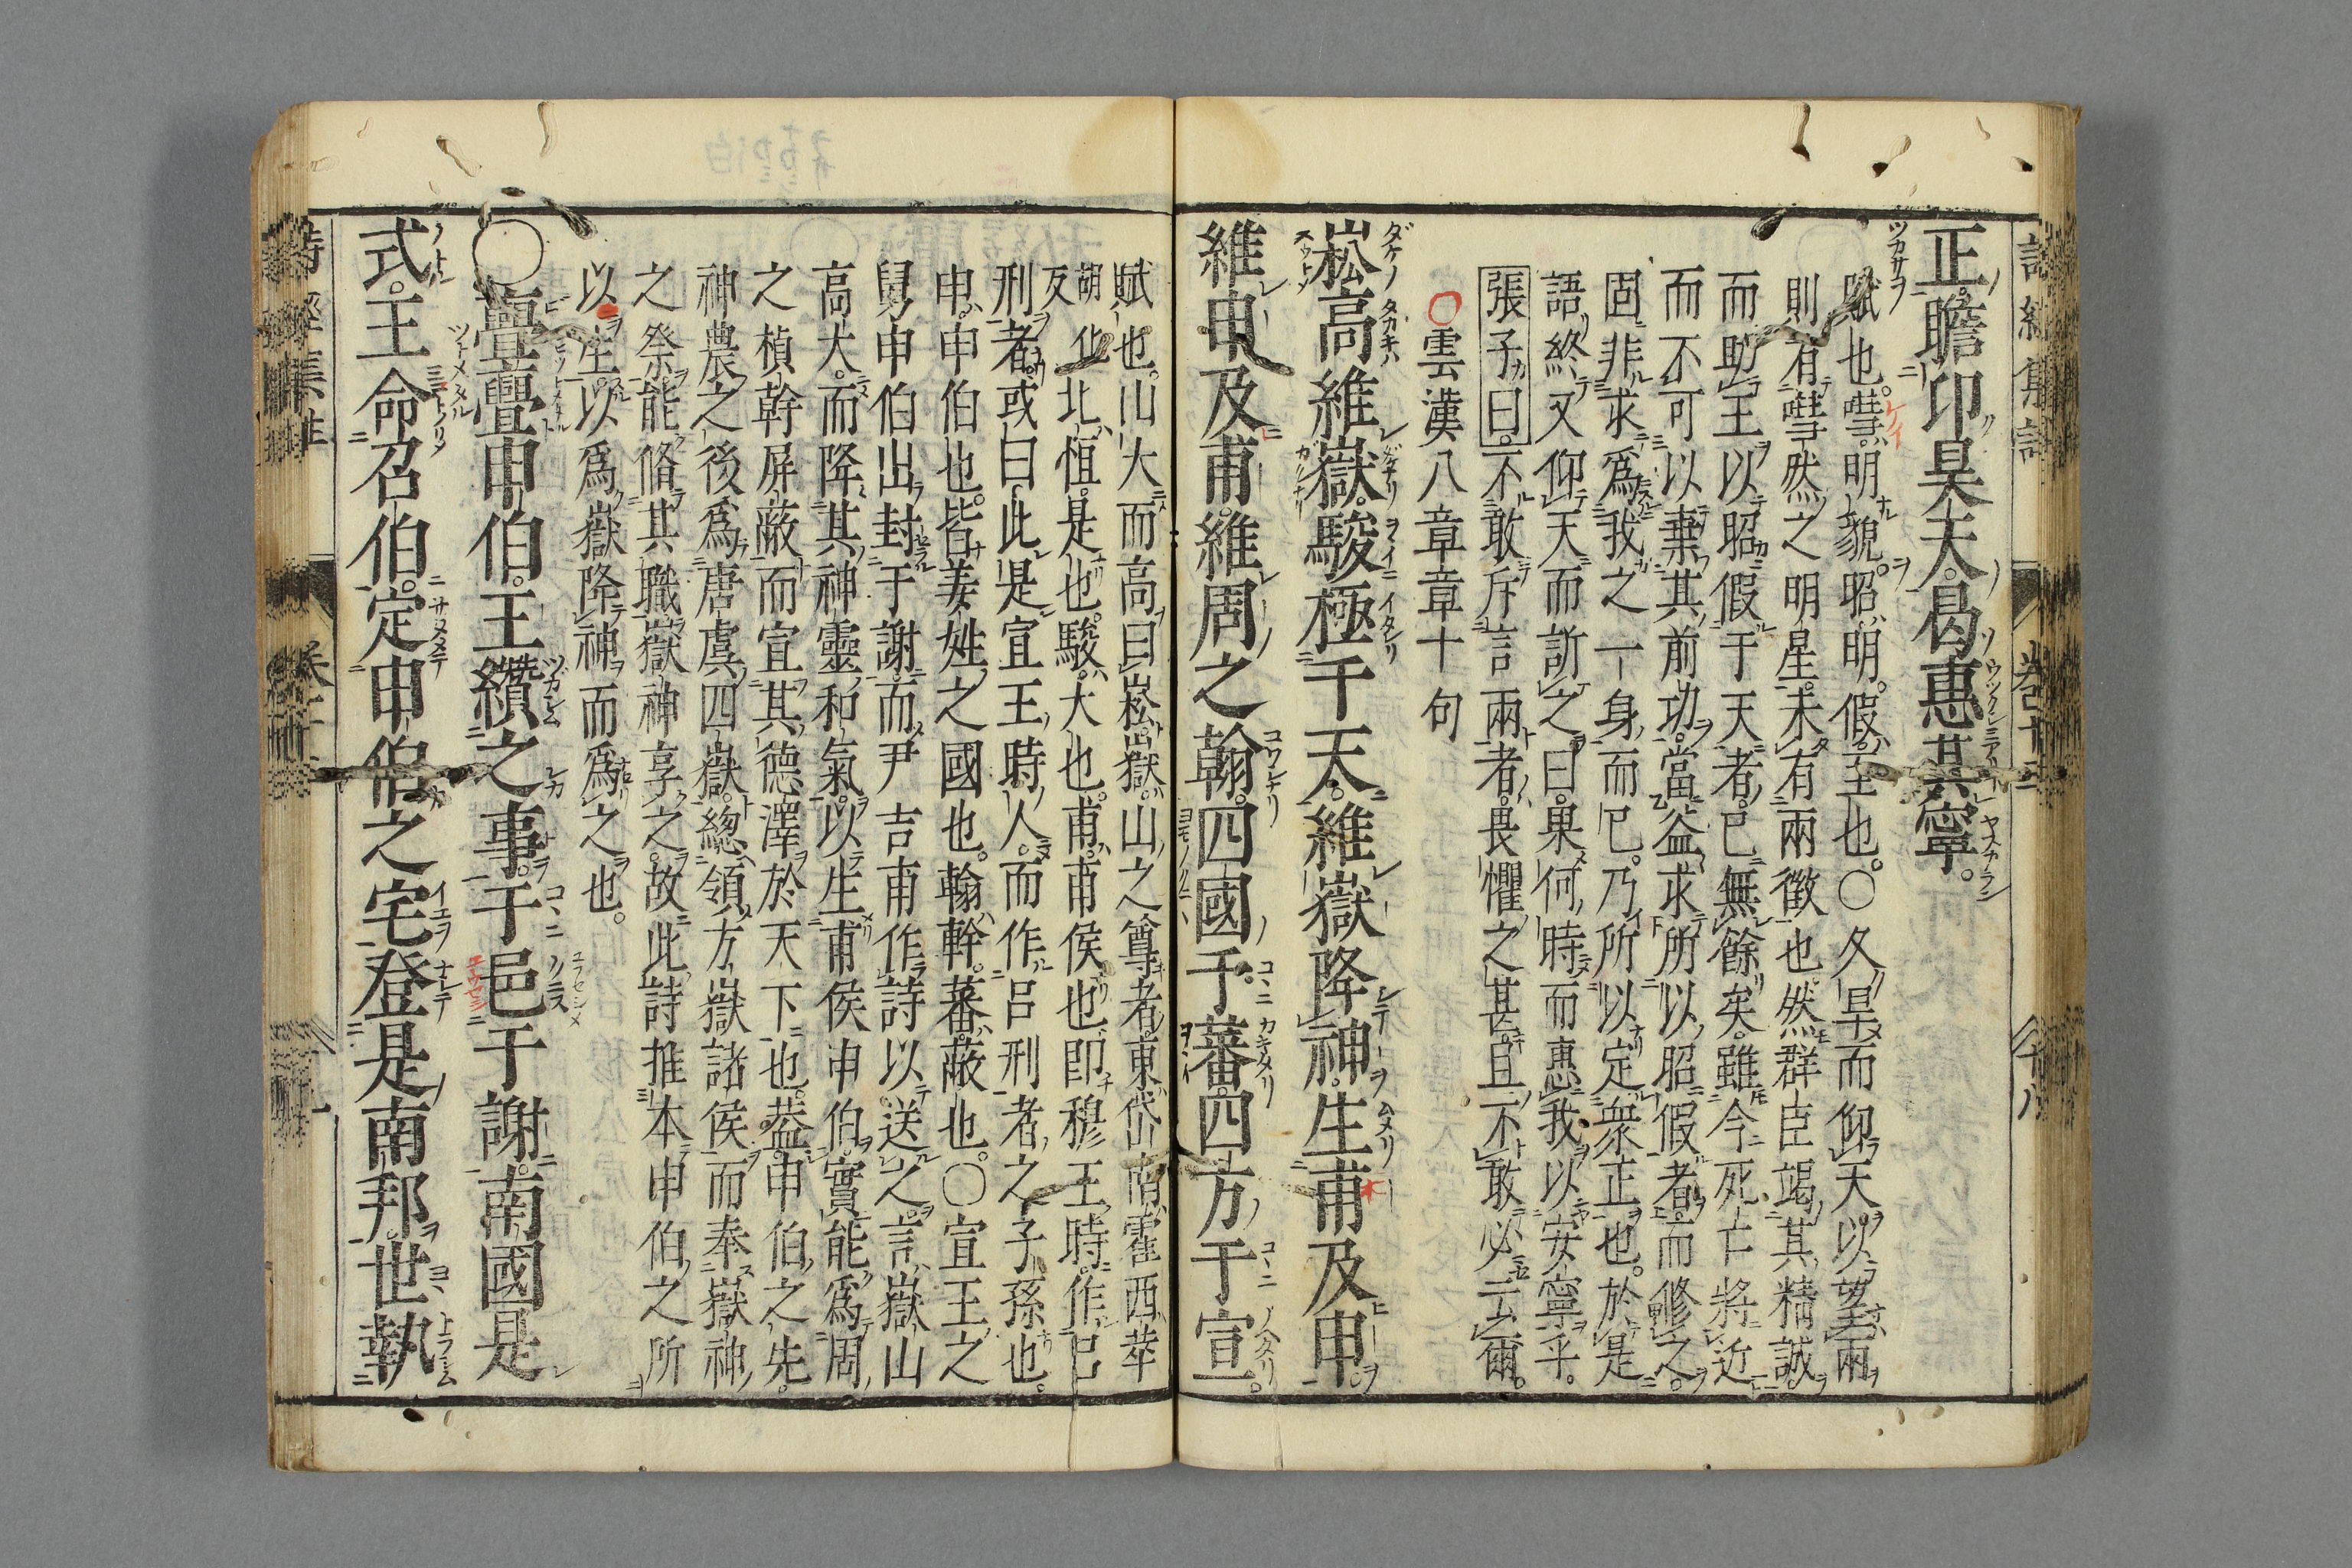 正瞻卬昊天曷惠其寧
賦也嘒明貌昭明假至也〇久旱而仰天以望雨
則有嘒然之明星未有雨徵也然群臣竭其精誠
而助王以昭假于天者已無餘矣雖今死亡將近
而不可以棄其前功當益求所以昭假者而脩之
固非求爲我之一身而已乃所以定衆正也於是
語終又仰天而訴之曰果何時而惠我以安寧乎
張子曰不敢斥言雨者畏懼之甚且不敢必云爾
〇雲漢八章章十句
崧高維嶽駿極于天維嶽降神生甫及申
維申及甫維周之翰四國于蕃四方于宣
賦也山大而高曰崧嶽山之尊者東岱南霍西華
胡化反北恒是也駿大也甫甫侯也卽穆王時作呂
刑者或曰此是宣王時人而作呂刑者之子孫也
申申伯也皆姜姓之國也翰幹蕃蔽也〇宣王之
舅申伯出封于謝而尹吉甫作詩以送之言嶽山
高大而降其神靈和氣以生甫侯申伯實能爲周
之楨幹屏蔽而宣其德澤於天下也蓋申伯之先
神農之後爲唐虞四嶽總領方嶽諸侯而奉嶽神
之祭能脩其職嶽神享之故此詩推本申伯之所
以生以爲嶽降神而爲之也
〇亹亹申伯王纘之事于邑于謝南國是
式王命召伯定申伯之宅登是南邦世執